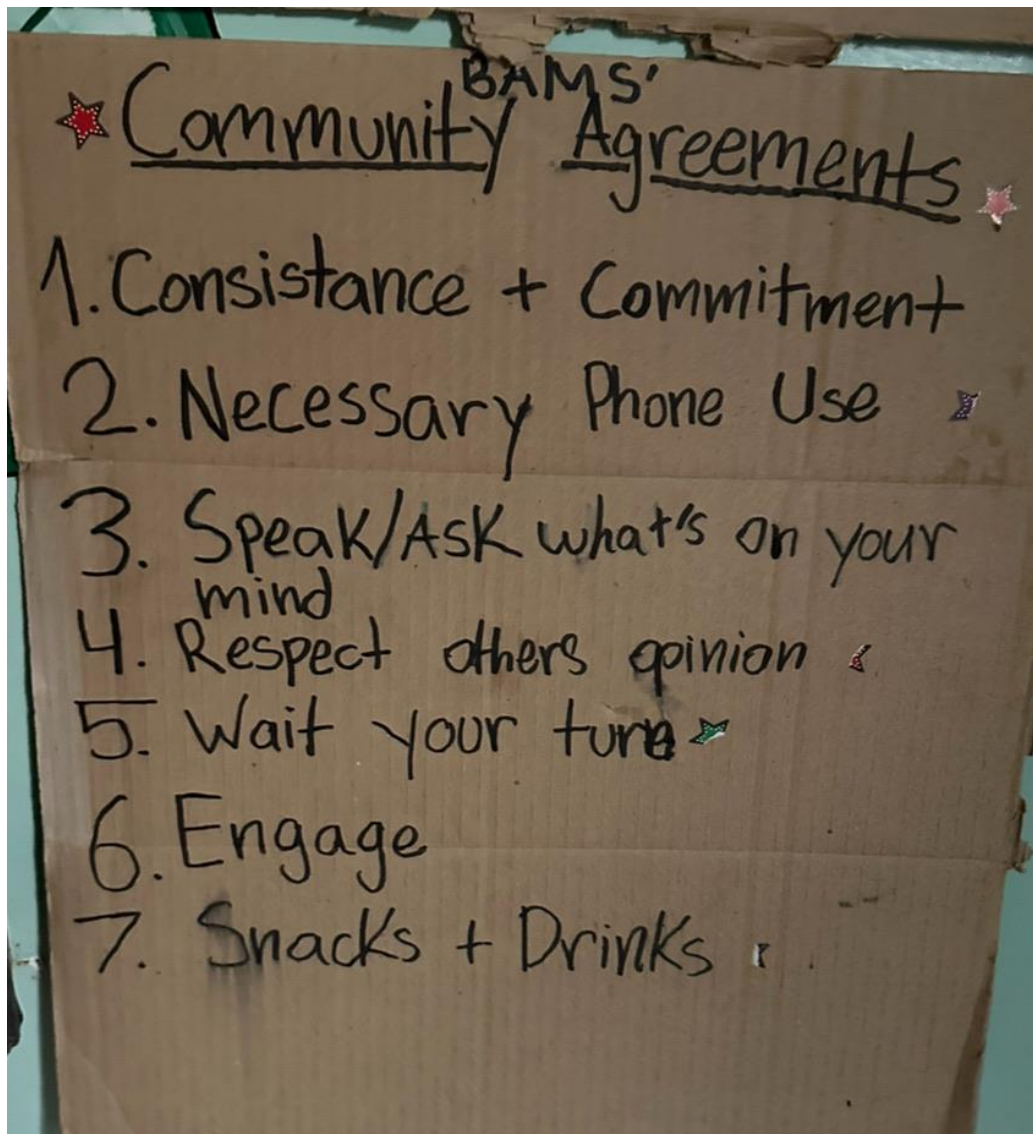 BAMS'
Community Agreements
1. Consistance + Commitment
2. Necessary Phone Use
3. Speak/Ask what's on your
mind
4. Respect others opinion
5. Wait your turn
6. Engage
7. Snacks + Drinks